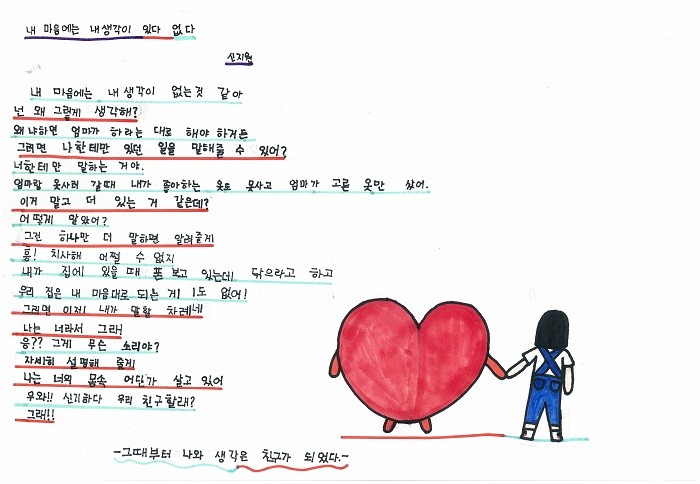 내 마음에는 내 생각이 있다 없다
신지원
내 마음에는 내 생각이 없는것 같아
넌 왜 그렇게 생각해?
왜냐하면 엄마가 하라는 대로 해야 하거든
그러면 나한테만 있던 일을 말해줄 수 있어?
너한테만 말하는 거야.
엄마랑 옷사러 갈때 내가 좋아하는 옷도 못사고 엄마가 고른 옷만 샀어.
이거 말고 더 있는 거 같은데?
어떻게 알았어?
그건 하나만 더 말하면 알려줄게
흥! 치사해 어쩔 수 없지
내가 집에 있을 때 폰 보고 있는데 닦으라고 하고
우리 집은 내 마음대로 되는 게 1도 없어!
그러면 이제 내가 말할 차례네
나는 너라서 그래
응?? 그게 무슨 소리야?
자세히 설명해 줄게
나는 너의 몸속 어딘가 살고 있어
우와!! 신기하다 우리 친구할래?
그래!!
-그때부터 나와 생각은 친구가 되었다.-